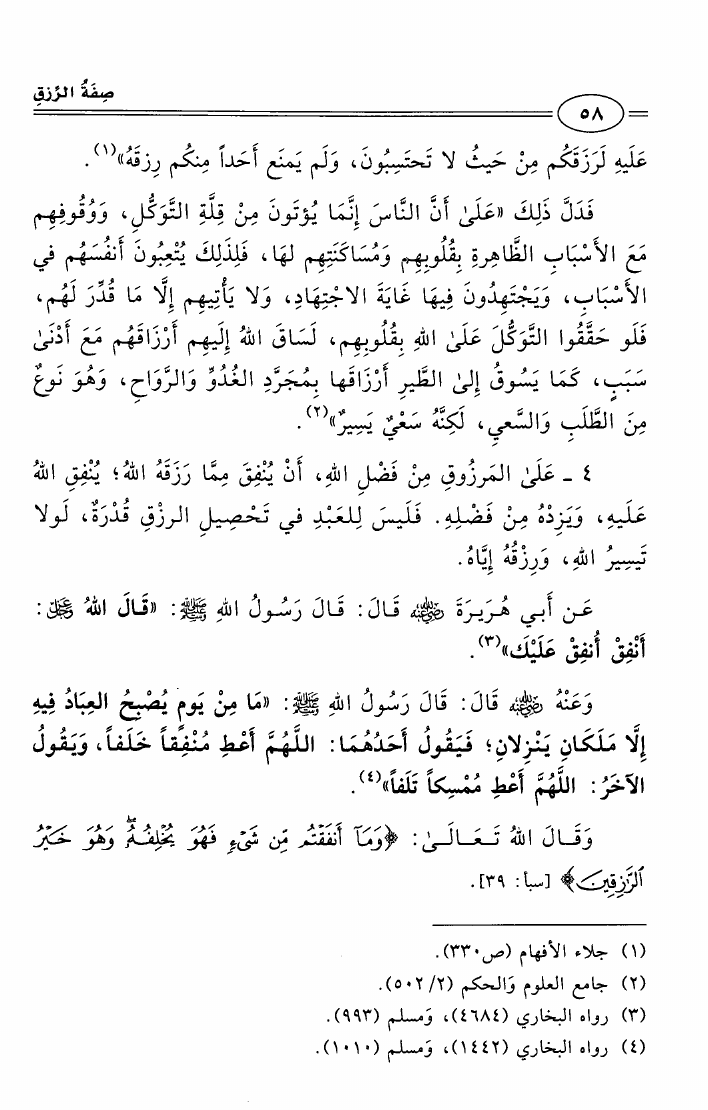 صِفَةُ الرِّزقِ
٥٨
عَلَيهِ لَرَزَقَكُم مِنْ حَيثُ لا تَحتَسِبُونَ، وَلَم يَمنَع أَحَداً مِنكُم رِزقَهُ»(١).
فَدَلَّ ذَلِكَ «عَلَىٰ أَنَّ النَّاسَ إِنَّمَا يُؤتَونَ مِنْ قِلَّةِ التَّوَكُّلِ، وَوُقُوفِهِم
مَعَ الأَسْبَابِ الظَّاهِرةِ بِقُلُوبِهِم وَمُسَاكَنَتِهِم لهَا، فَلِذَلِكَ يُتْعِبُونَ أَنفُسَهُم في
الأَسْبَابِ، وَيَجْتَهِدُونَ فِيهَا غَايَةَ الاجْتِهَادِ، وَلا يَأْتِيهِم إِلَّا مَا قُدِّرَ لَهُم،
فَلَو حَقَّقُوا التَّوَكُّلَ عَلَىٰ اللهِ بِقُلُوبِهِم، لَسَاقَ اللهُ إِلَيهِم أَرْزَاقَهُم مَعَ أَدْنَىٰ
سَبَبٍ، كَمَا يَسُوقُ إِلىٰ الطَّيرِ أَرْزَاقَها بِمُجَرَّدِ الغُدُوِّ وَالرَّوَاحِ، وَهُوَ نَوعٌ
مِنَ الطَّلَبِ وَالسَّعي، لَكِنَّهُ سَعْيٌ يَسِيرٌ»(٢).
٤ ـ عَلَىٰ المَرزُوقِ مِنْ فَضْلِ اللهِ، أَنْ يُنْفِقَ مِمَّا رَزَقَهُ اللهُ؛ يُنْفِقِ اللهُ
عَلَيهِ، وَيَزِدْهُ مِنْ فَضْلِهِ. فَلَيسَ لِلعَبْدِ في تَحْصِيلِ الرزْقِ قُدْرَةٌ، لَولا
تَيسِيرُ اللهِ، وَرِزْقُهُ إِيَّاهُ.
عَن أَبي هُرَيرَةَ رضي الله عنه قَالَ: قَالَ رَسُولُ اللهِ ﷺ: «قَالَ اللهُ عز وجل:
أَنْفِقْ أُنفِقْ عَلَيْكَ»(٣).
وَعَنْهُ رضي الله عنه قَالَ: قَالَ رَسُولُ اللهِ ﷺ: «مَا مِنْ يَومٍ يُصْبِحُ العِبَادُ فِيهِ
إِلَّا مَلَكَانِ يَنْزِلانِ؛ فَيَقُولُ أَحَدُهُمَا: اللَّهُمَّ أَعْطِ مُنْفِقاً خَلَفاً، وَيَقُولُ
الآخَرُ: اللَّهُمَّ أَعْطِ مُمْسِكاً تَلَفاً»(٤).
وَقَـالَ اللهُ تَـعَـالَـىٰ: ﴿وَمَآ أَنفَقۡتُم مِّن شَىۡءٖ فَهُوَ يُخۡلِفُهُۥۖ وَهُوَ خَيۡرُ
ٱلرَّٰزِقِينَ﴾ [سبأ: ٣٩].
(١) جلاء الأفهام (ص٣٣٠).
(٢) جامع العلوم وَالحكم (٢/ ٥٠٢).
(٣) رواه البخاري (٤٦٨٤)، وَمسلم (٩٩٣).
(٤) رواه البخاري (١٤٤٢)، وَمسلم (١٠١٠).